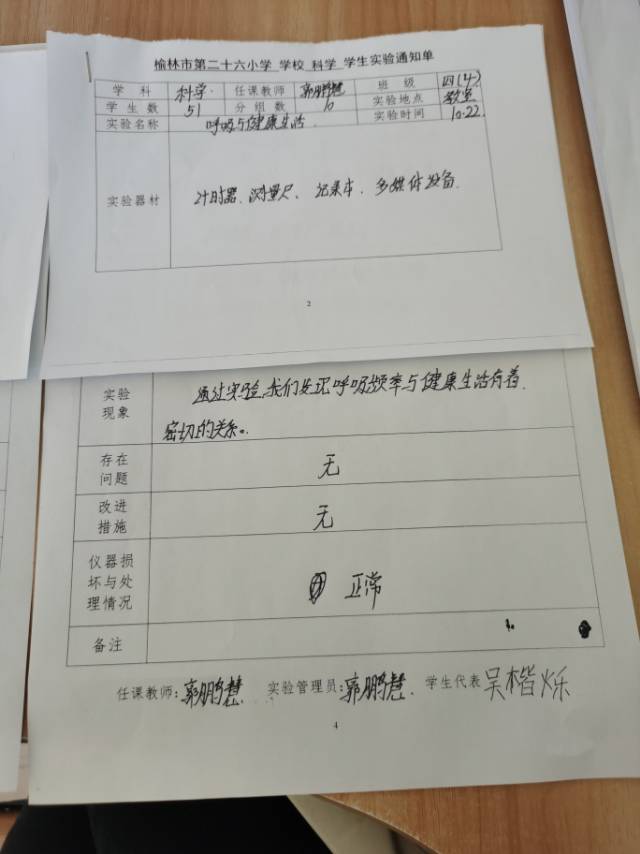 榆林市第二十六小学 学校 科学 学生实验通知单
学科 科学 任课教师 郭鹏慧 班级 四(4)
学生数 51 分组数 10 实验地点 教室
实验名称 呼吸与健康生活 实验时间 10.22
实验器材 计时器、测量尺、记录本、多媒体设备
2
实验现象 通过实验,我们发现呼吸频率与健康生活有着
密切的关系。
存在问题 无
改进措施 无
仪器损坏与处理情况 正常
备注
任课教师:郭鹏慧 实验管理员:郭鹏慧 学生代表 吴楷烁
4